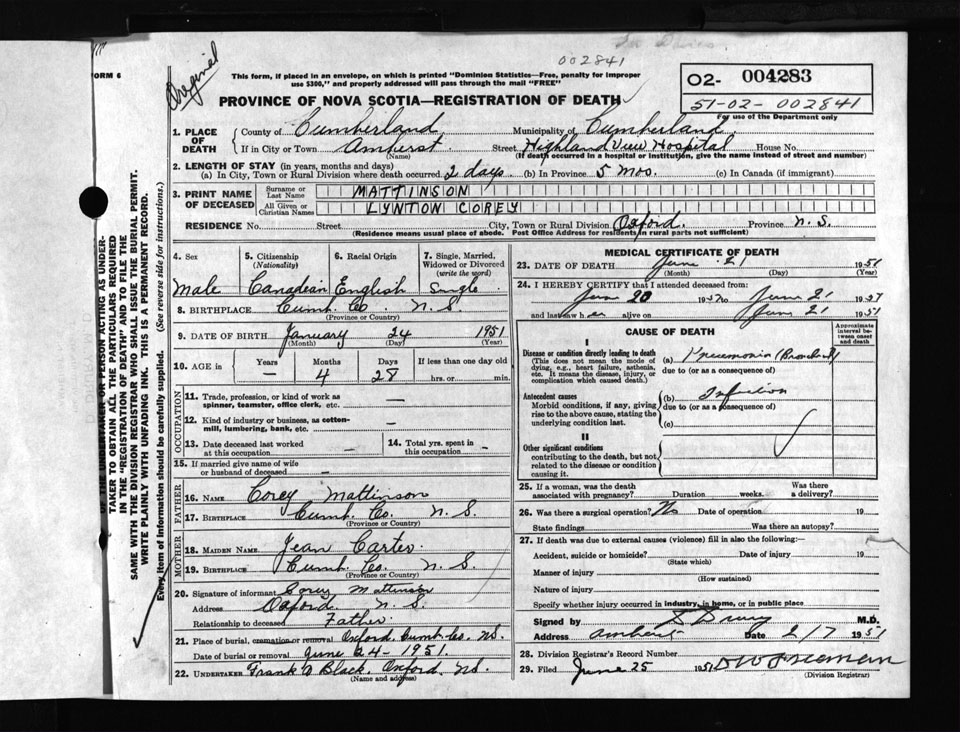 002841
Original
FORM 6
This form, if placed in an envelope, on which is printed "Dominion Statistics—Free, penalty for improper
use $300," and properly addressed will pass through the mail "FREE"
O2- 004283
51-02- 002841
For use of the Department only
PROVINCE OF NOVA SCOTIA—REGISTRATION OF DEATH
1. PLACE OF DEATH County of Cumberland Municipality of Cumberland
If in City or Town Amherst Street Highland View Hospital House No.
(Name) (If death occurred in a hospital or institution, give the name instead of street and number)
2. LENGTH OF STAY (in years, months and days)
(a) In City, Town or Rural Division where death occurred 2 days (b) In Province 5 mos. (c) In Canada (if immigrant)
3. PRINT NAME OF DECEASED Surname or Last Name MATTINSON
All Given or Christian Names LYNTON COREY
RESIDENCE No. Street City, Town or Rural Division Oxford Province N.S.
(Residence means usual place of abode. Post Office Address for residents in rural parts not sufficient)
4. Sex 5. Citizenship (Nationality) 6. Racial Origin 7. Single, Married, Widowed or Divorced (write the word)
Male Canadian English Single
8. BIRTHPLACE Cumb. Co N.S.
(Province or Country)
9. DATE OF BIRTH January 24 1951
(Month) (Day) (Year)
10. AGE in Years Months Days If less than one day old
— 4 28 hrs. or min.
OCCUPATION
11. Trade, profession, or kind of work as spinner, teamster, office clerk, etc. —
12. Kind of industry or business, as cotton-mill, lumbering, bank, etc. —
13. Date deceased last worked at this occupation — 14. Total yrs. spent in this occupation —
15. If married give name of wife or husband of deceased —
FATHER
16. NAME Corey Mattinson
17. BIRTHPLACE Cumb. Co. N.S.
(Province or Country)
MOTHER
18. MAIDEN NAME Jean Carter
19. BIRTHPLACE Cumb. Co. N.S.
(Province or Country)
20. Signature of informant Corey Mattinson
Address Oxford N.S.
Relationship to deceased Father
21. Place of burial, cremation or removal Oxford Cumb. Co. NS.
Date of burial or removal June 24-1951.
22. UNDERTAKER Frank A Black, Oxford, NS.
(Name and address)
MEDICAL CERTIFICATE OF DEATH
23. DATE OF DEATH June 21 1951
(Month) (Day) (Year)
24. I HEREBY CERTIFY that I attended deceased from:
June 20 19 to June 21 19
and last saw h alive on June 21 1951
CAUSE OF DEATH
Approximate interval between onset and death
I
Disease or condition directly leading to death (a) Pneumonia
(This does not mean the mode of dying, e.g., heart failure, asthenia, etc. It means the disease, injury, or complication which caused death.) due to (or as a consequence of)
Antecedent causes (b) Infection
Morbid conditions, if any, giving rise to the above cause, stating the underlying condition last. due to (or as a consequence of)
(c)
II
Other significant conditions
contributing to the death, but not related to the disease or condition causing it.
25. If a woman, was the death associated with pregnancy? Duration weeks. Was there a delivery?
26. Was there a surgical operation? No Date of operation 19
State findings Was there an autopsy?
27. If death was due to external causes (violence) fill in also the following:—
Accident, suicide or homicide? Date of injury 19
(State which)
Manner of injury
(How sustained)
Nature of injury
Specify whether injury occurred in industry, in home, or in public place
Signed by M.D.
Address Amherst Date 2/7 1951
28. Division Registrar's Record Number
29. Filed June 25 1951
(Division Registrar)
OF THE UNDERTAKER OR PERSON ACTING AS UNDER-
TAKER TO OBTAIN ALL THE PARTICULARS REQUIRED
IN THE "REGISTRATION OF DEATH" AND TO FILE THE
SAME WITH THE DIVISION REGISTRAR WHO SHALL ISSUE THE BURIAL PERMIT.
WRITE PLAINLY WITH UNFADING INK. THIS IS A PERMANENT RECORD.
Every item of information should be carefully supplied. (See reverse side for instructions.)